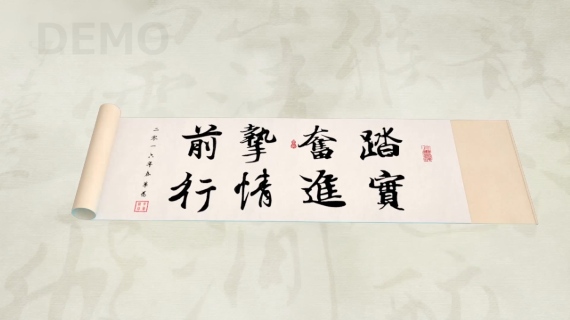 DEMO
踏實
奮進
摯情
前行
二零一六年春